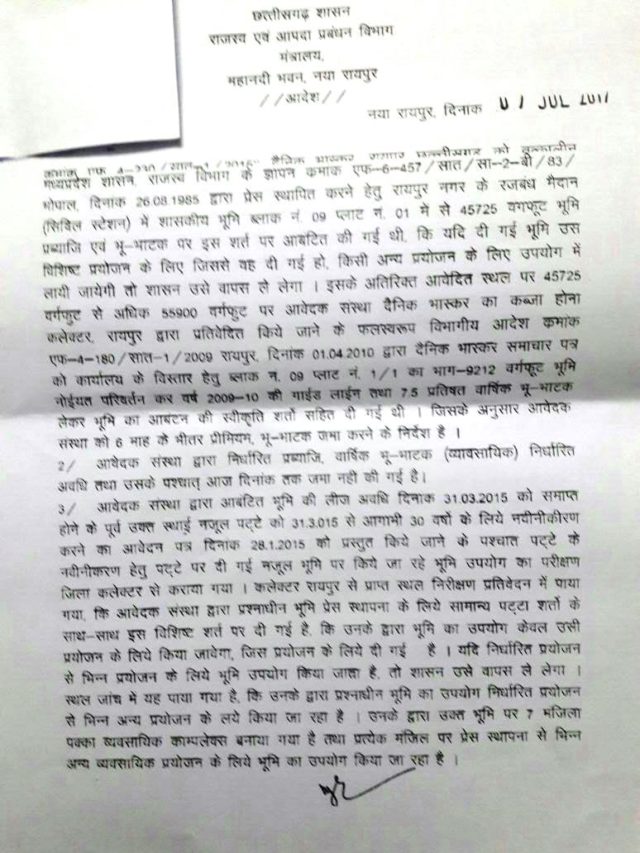 छत्तीसगढ़ शासन
राजस्व एवं आपदा प्रबंधन विभाग
मंत्रालय,
महानदी भवन, नया रायपुर
//आदेश//
नया रायपुर, दिनांक 07 JUL 2017
मध्यप्रदेश शासन, राजस्व विभाग के ज्ञापन कमांक एफ-6-457/सात/सा-2-बी/83/
भोपाल, दिनांक 26.08.1985 द्वारा प्रेस स्थापित करने हेतु रायपुर नगर के रजबंध मैदान
(सिविल स्टेशन) में शासकीय भूमि ब्लाक नं. 09 प्लाट नं. 01 में से 45725 वर्गफूट भूमि
प्रब्याजि एवं भू-भाटक पर इस शर्त पर आबंटित की गई थी, कि यदि दी गई भूमि उस
विशिष्ट प्रयोजन के लिए जिससे वह दी गई हो, किसी अन्य प्रयोजन के लिए उपयोग में
लायी जायेगी तो शासन उसे वापस ले लेगा । इसके अतिरिक्त आवेदित स्थल पर 45725
वर्गफुट से अधिक 55900 वर्गफुट पर आवेदक संस्था दैनिक भास्कर का कब्जा होना
कलेक्टर, रायपुर द्वारा प्रतिवेदित किये जाने के फलस्वरूप विभागीय आदेश कमांक
एफ-4-180/सात-1/2009 रायपुर, दिनांक 01.04.2010 द्वारा दैनिक भास्कर समाचार पत्र
को कार्यालय के विस्तार हेतु ब्लाक नं. 09 प्लाट नं. 1/1 का भाग-9212 वर्गफूट भूमि
नोईयत परिवर्तन कर वर्ष 2009-10 की गाईड लाईन तथा 7.5 प्रतिषत वार्षिक भू-भाटक
लेकर भूमि का आबंटन की स्वीकृति शर्तो सहित दी गई थी । जिसके अनुसार आवेदक
संस्था को 6 माह के भीतर प्रीमियम, भू-भाटक जमा करने के निर्देश है ।
2/ आवेदक संस्था द्वारा निर्धारित प्रब्याजि, वार्षिक भू-भाटक (व्यावसायिक) निर्धारित
अवधि तथा उसके पश्चात् आज दिनांक तक जमा नही की गई है।
3/ आवेदक संस्था द्वारा आबंटित भूमि की लीज अवधि दिनांक 31.03.2015 को समाप्त
होने के पूर्व उक्त स्थाई नजूल पट्टे को 31.3.015 से आगामी 30 वर्षो के लिये नवीनीकरण
करने का आवेदन पत्र दिनांक 28.1.2015 को प्रस्तुत किये जाने के पश्चात पट्टे के
नवीनीकरण हेतु पट्टे पर दी गई नजूल भूमि पर किये जा रहे भूमि उपयोग का परीक्षण
जिला कलेक्टर से कराया गया । कलेक्टर रायपुर से प्राप्त स्थल निरीक्षण प्रतिवेदन में पाया
गया, कि आवेदक संस्था द्वारा प्रश्नाधीन भूमि प्रेस स्थापना के लिये सामान्य पट्टा शर्तो के
साथ-साथ इस विशिष्ट शर्त पर दी गई है, कि उनके द्वारा भूमि का उपयोग केवल उसी
प्रयोजन के लिये किया जावेगा, जिस प्रयोजन के लिये दी गई है । यदि निर्धारित प्रयोजन
से भिन्न प्रयोजन के लिये भूमि उपयोग किया जाता है, तो शासन उसे वापस ले लेगा ।
स्थल जांच में यह पाया गया है, कि उनके द्वारा प्रश्नाधीन भूमि का उपयोग निर्धारित प्रयोजन
से भिन्न अन्य प्रयोजन के लये किया जा रहा है । उनके द्वारा उक्त भूमि पर 7 मंजिला
पक्का व्यवसायिक काम्पलेक्स बनाया गया है तथा प्रत्येक मंजिल पर प्रेस स्थापना से भिन्न
अन्य व्यवसायिक प्रयोजन के लिये भूमि का उपयोग किया जा रहा है ।